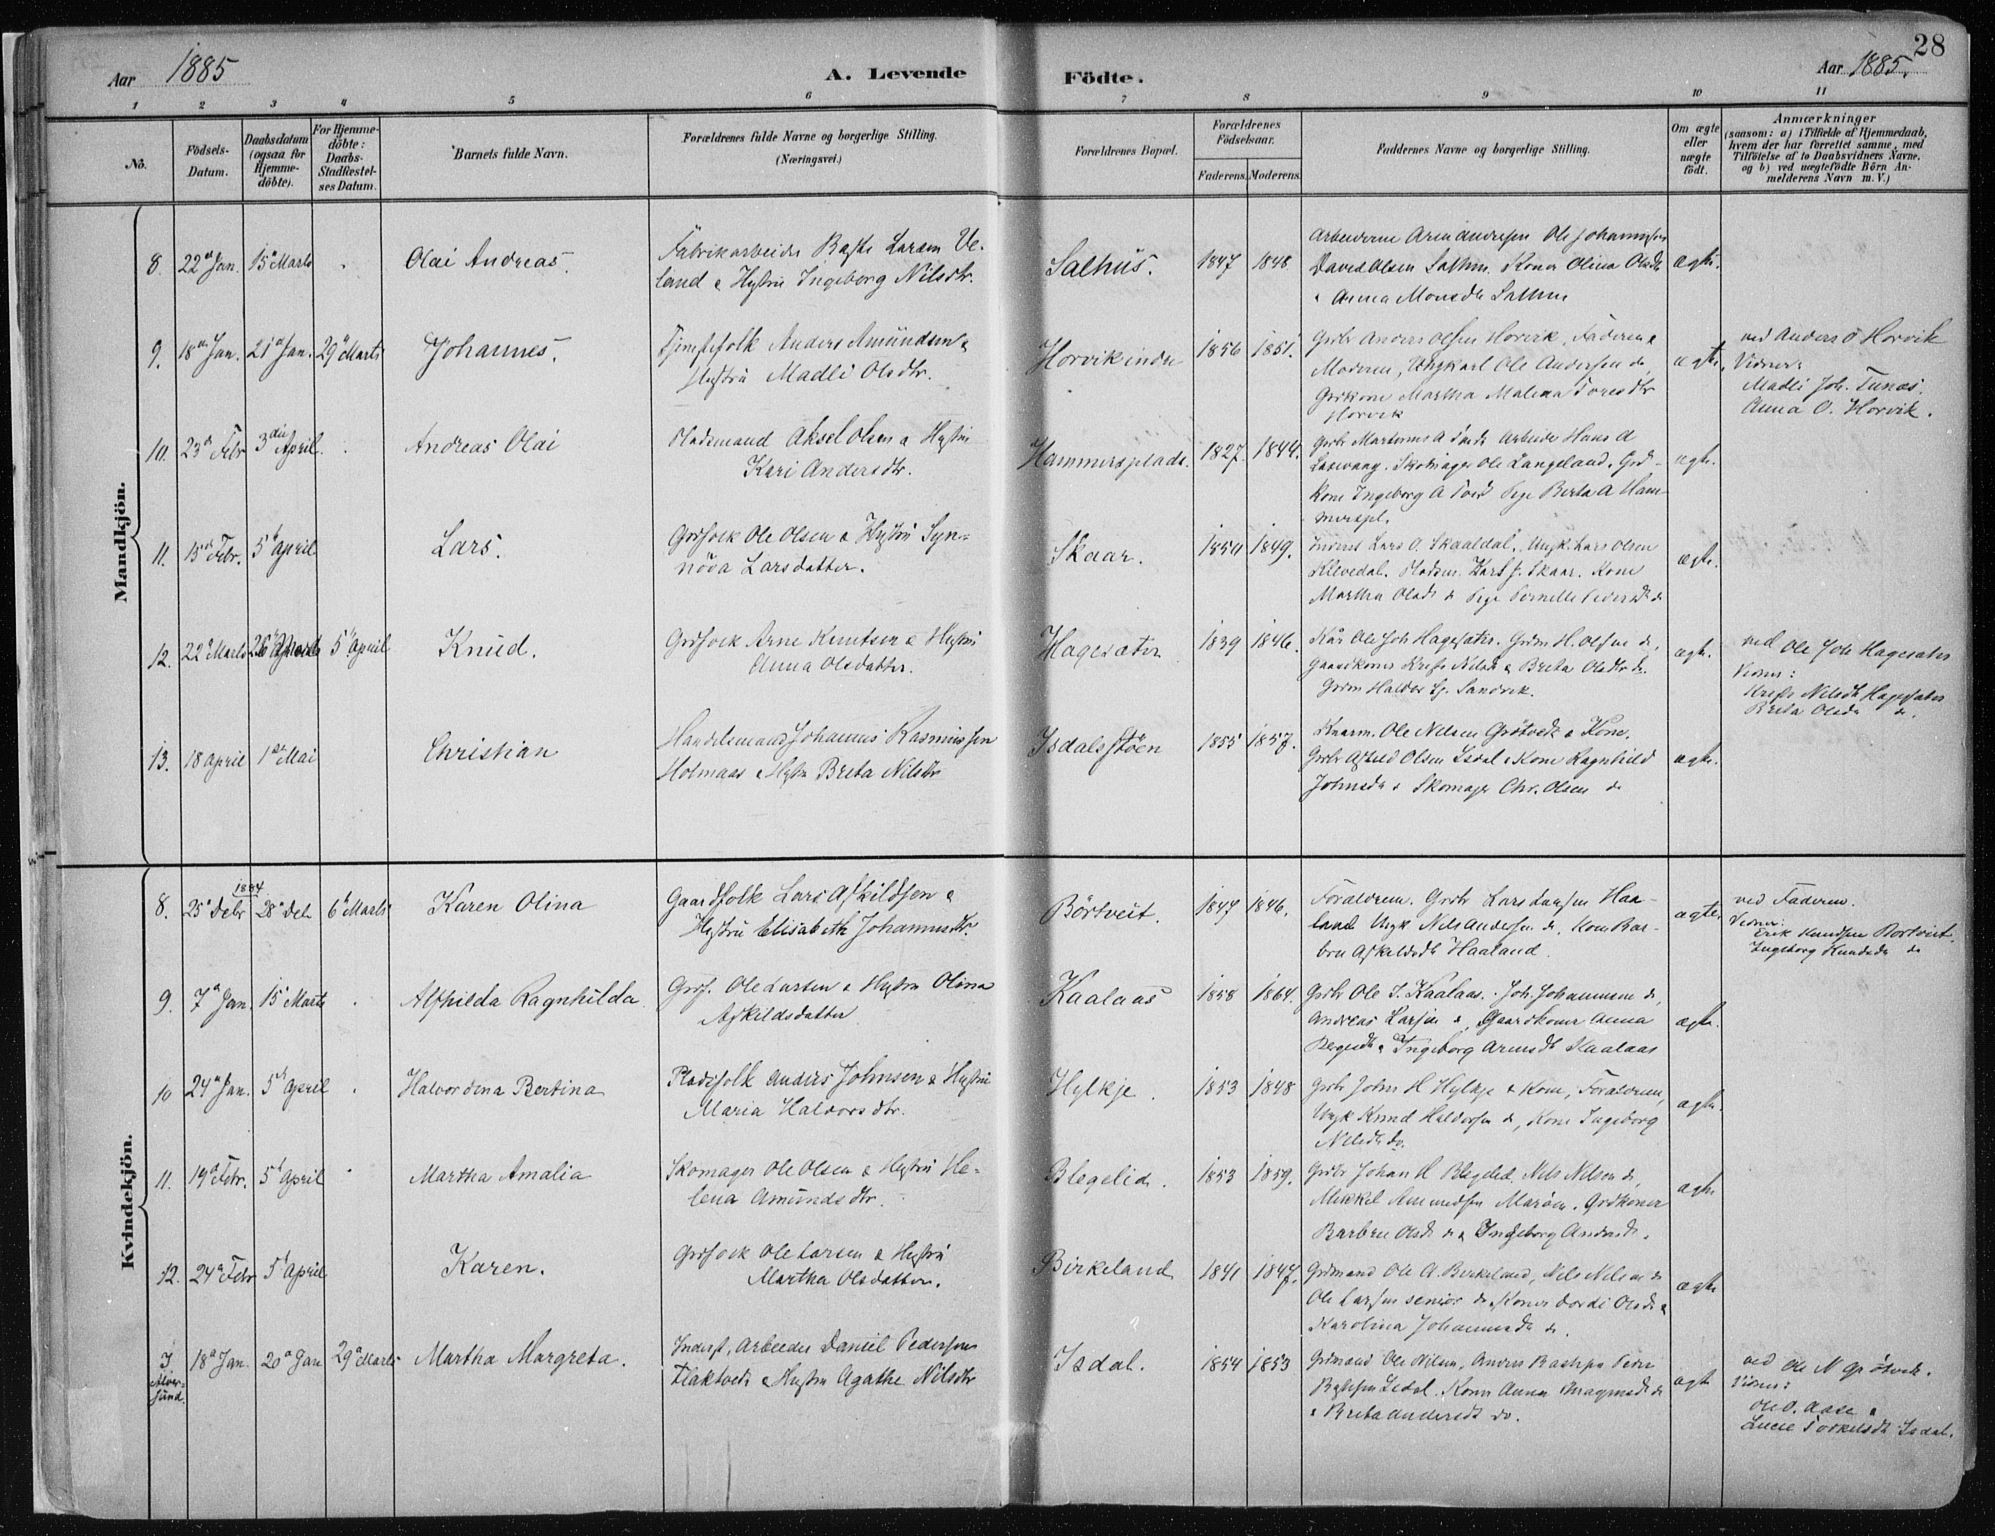 28
Aar 1885
A. Levende
Födte.
Aar 1885.
1 2 3 4 5 6 7 8 9 10 11
No.
Födsels-
Datum.
Daabsdatum
(ogsaa for
Hjemme-
döbte).
For Hjemme-
döbte:
Daabs-
Stadfæstel-
ses Datum.
Barnets fulde Navn.
Forældrenes fulde Navne og borgerlige Stilling.
(Næringsvei.)
Forældrenes Bopæl.
Forældrenes
Födselsaar.
Faderens. Moderens.
Faddernes Navne og borgerlige Stilling.
Om ægte
eller
uægte
födt.
Anmærkninger
(saasom: a) i Tilfælde af Hjemmedaab,
hvem der har forrettet samme, med
Tilföielse af to Daabsvidners Navne,
og b) ved uægtefödte Börn An-
melderens Navn m. V.)
Mandkjön.
8. 22 Jan. 15 Marts . Olai Andreas.
Fabrikarbeider Larsen Ve-
land & Hustru Ingeborg Nilsdtr.
Salhus. 1847 1848
Arbeiderne Ole Johannesen
David Olsen Salhus. Koner Olina Olsdt
& Anna Monsdt Salhus
ægte.
9. 18 Jan. 21 Jan. 29 Marts Johannes.
Tjenstefolk Anders Amundsen &
Hustru Madli Olsdtr.
Horvik indre 1856 1851.
Grbr Anders Olsen Horvik, Faderen &
Moderen, Ungkarl Ole Andersen do,
Grdkone Martha Malena
Horvik
ægte.
ved Anders O Horvik
Vidner:
Madli Joh. Tunæs.
Anna O. Horvik.
10. 23 Febr 3die April . Andreas Olai
Pladsmand Aksel Olsen & Hustru
Kari Andersdtr.
Hammersplads. 1827. 1844.
Arbeider Hans A
Skomager Ole Langeland. Grd-
kone Ingeborg A Pige Berta A Ham-
merspl.
ægte.
11. 15 Febr. 5 April Lars.
Grdfolk Ole Olsen & Hustru Syn-
növa Larsdatter.
Skaar. 1850 1849.
Lars O. Skaaldal. Ungk. Lars Olsen
Klevedal. Skaar. Kone
Martha Olsdt do Pige Pernille Pedersdt do
ægte.
12. 22 Marts 26 Marts 5 April Knud.
Grdfolk Arne Knutsen & Hustru
Anna Olsdatter.
Hagesæter 1839 1846.
Ole Joh Hagesæter. H. Olsen do,
Gaardkoner Nilsdt & Breta Olsdtr do.
Grdm Haldor Sandvik.
ægte.
ved Ole Joh Hagesæter
Vidner:
Nilsdt Hagesæter
Breta Olsdt do.
13. 18 april 1ste Mai Christian
Handelsmand Johannes Rasmussen
Holmaas & Hustru Breta Nilsdtr
Isdalstöen 1855 1857.
Ole Nilsen Grötvedt & Kone.
Grbr Olsen Isdal & Kone Ragnhild
Johnsdt & Skomager Chr. Olsen do
ægte.
Kvindekjön.
8. 25 Debr 1884 28 Deb 6 Marts Karen Olina
Gaardfolk Lars Askildsen &
Hustru Elisabeth Johannesdtr.
Börtveit. 1847 1846.
Forældrene. Grdbr Lars Larsen Haa-
land Ungk Nils Andersen do. Kone Bar-
bru Askeldsdt Haaland.
ægte
ved Faderen.
Vidner:
Erik Knudsen Bortveit
Ingeborg Knudsdt do
9. 7 Jan. 15 Marts . Alfhilda Ragnhilda
Grdf. Ole Larsen & Hustru Olina
Askildsdatter
Kaalaas 1858 1864.
Grbr Ole I. Kaalaas. Joh. Johannesen do,
Andreas Larsen do, Gaardkoner Anna
& Ingeborg Arnesdt Kaalaas
ægte.
10 24 Jan. 5 April . Halvordena Bertina
Pladsfolk Anders Johnsen & Hustru
Maria Haldorsdtr.
Hylkje. 1853 1848
Grbr John H Hylkje & Kone, Forældrene,
Ungk Knud Haldorsen do, Kone Ingeborg
Nilsdt do.
ægte.
11. 19 Febr. 5 April . Martha Amalia
Skomager Ole Olsen & Hustru He-
lena Amundsdtr.
Blegelid. 1853 1859.
Grbr Johan H Blegelid, Nils Nilsen do,
Mikkel Amundsen Maröen. Grdkoner
Barbru Olsdt do & Ingeborg Andersdt.
ægte
12. 24 Febr 5 April Karen.
Grdfolk Ole Larsen & Hustru
Martha Olsdatter.
Birkeland 1841 1847.
Grdmand Ole A. Birkeland, Nils Nilsen do
Ole Larsen senior do. Koner Dordi Olsdt &
Karolina Johannesdt do.
ægte
I
Alver-
sund.
18 Jan. 20 Jan 29 Marts Martha Margreta.
Inderst, Arbeider Daniel Pedersen
Fläktvedt & Hustru Agathe Nilsdtr
Isdal. 1854 1853
Grdmand Ole Nilsen, Anders
Isdal. Koner Anna Magnesdt do
& Breta Andersdt do.
ægte
ved Ole N Grötvedt.
Vidner:
Ole O. Aase &
Lucie Torkelsdt Isdal.